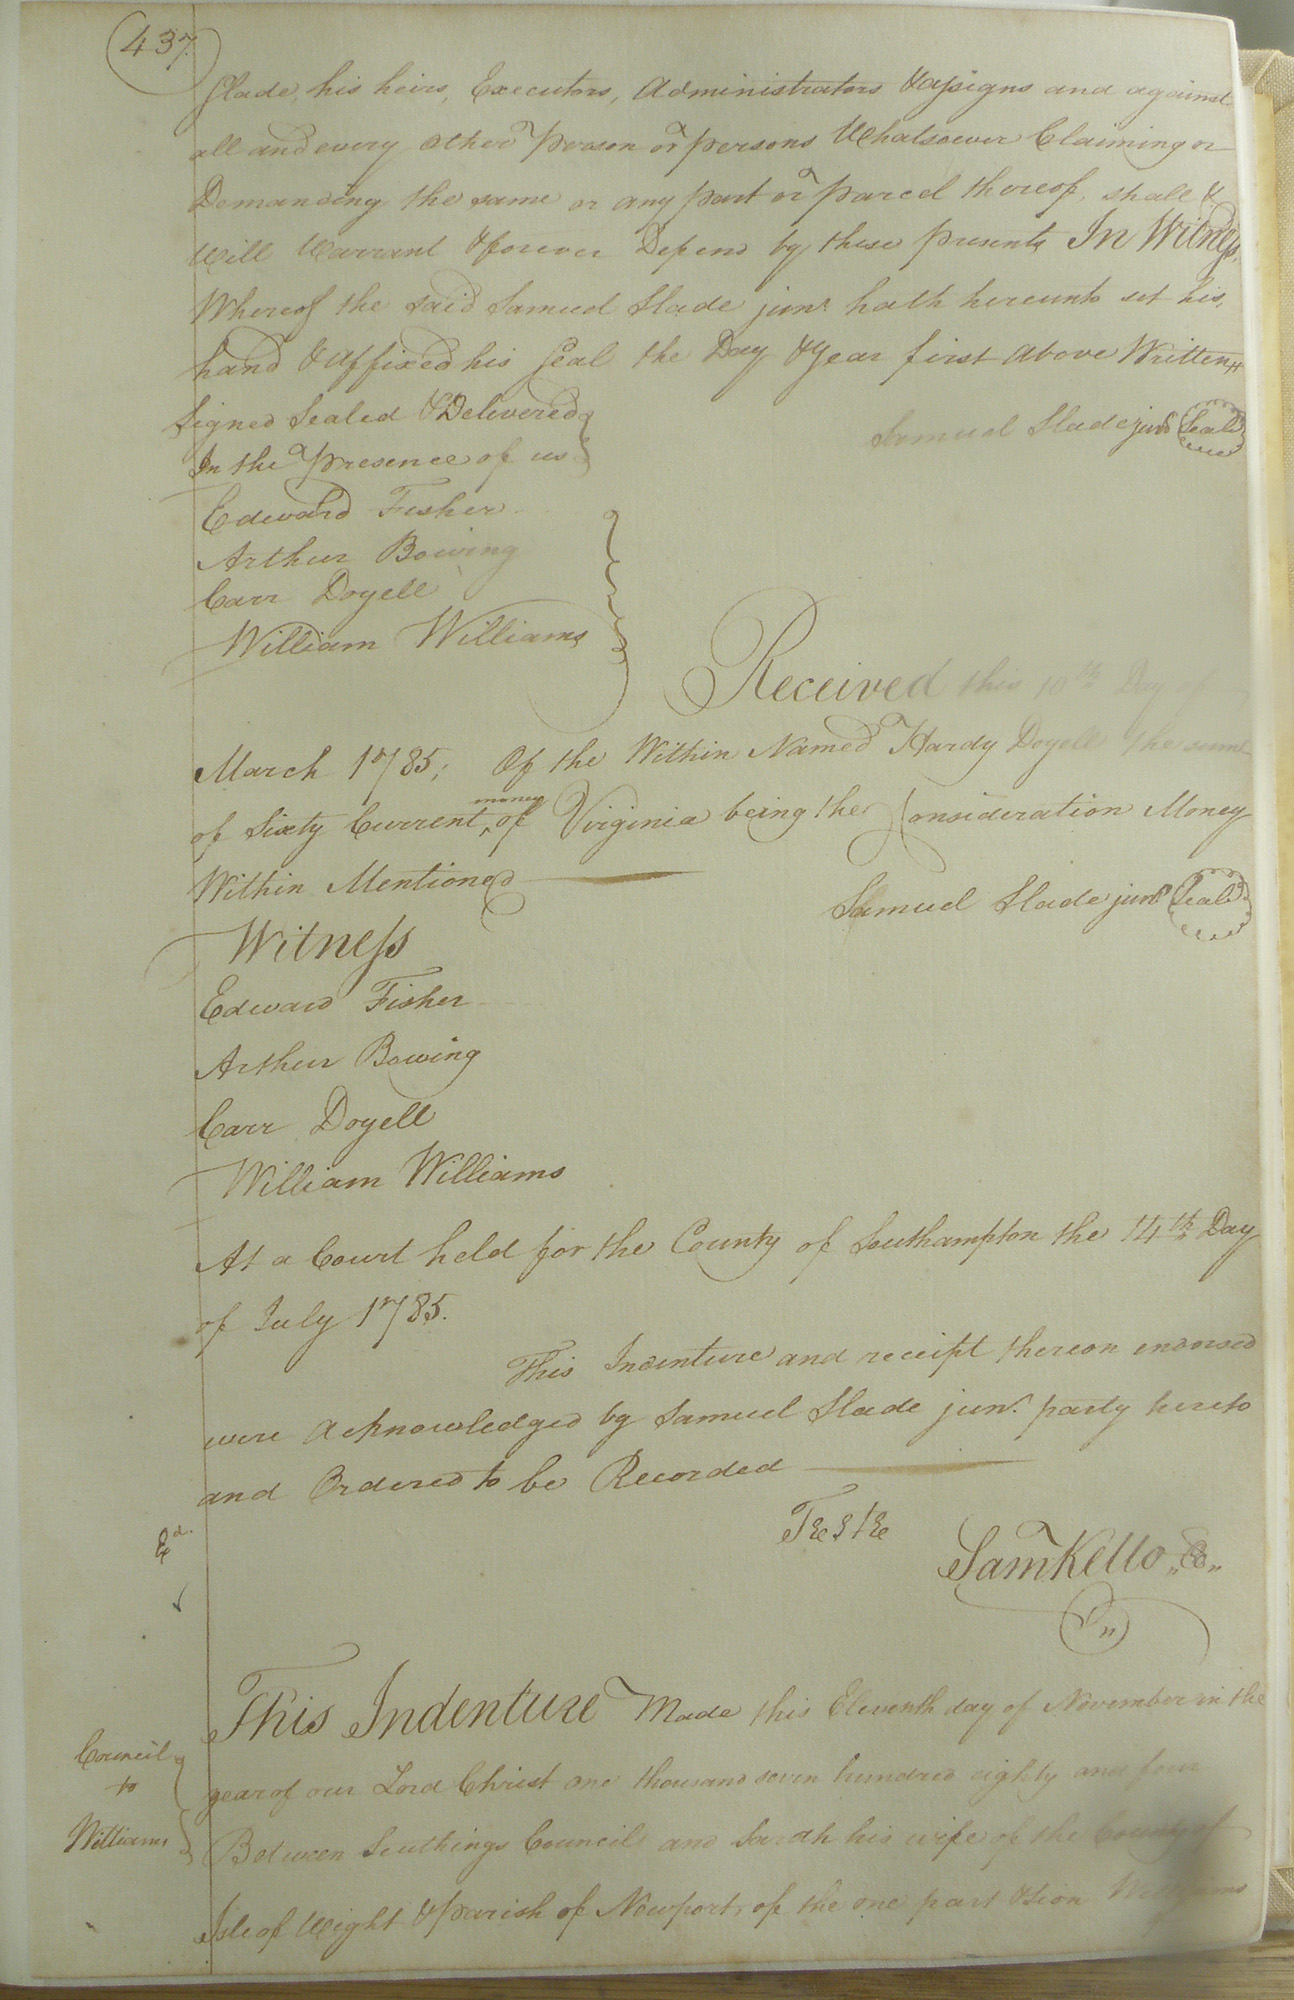 437.
Slade, his heirs, Executors, Administrators & assigns and against
all and every other person or persons Whatsoever Claiming or
Demanding the same or any part or parcel thereof, shall &
Will Warrant & forever Defend by these presents In Witness,
Whereof the said Samuel Slade junr. hath hereunto set his,
hand & Affixed his Seal the Day & Year first above Written
Signed Sealed & Delivered
Samuel Slade junr Seal
In the presence of us
Edward Fisher
Arthur Bowing
Carr Doyell
William Williams
Received this 10th Day of
March 1785; Of the Within Named Hardy Doyell the sum
of Sixty Current money of Virginia being the Consideration Money
Within Mentioned
Samuel Slade junr Seal
Witness
Edward Fisher
Arthur Bowing
Carr Doyell
William Williams
At a Court held for the County of Southampton the 14th Day
of July 1785.
This Indenture and receipt thereon endorsed
were Acknowledged by Samuel Slade junr. party hereto
and Ordered to be Recorded
Teste
Exd.
Sam Kello
This Indenture Made this Eleventh day of November in the
Council
to
Williams
year of our Lord Christ one thousand seven hundred eighty and four
Between Scuthings Council and Sarah his wife of the County of
Isle of Wight & parish of Newport, of the one part & Sion Williams